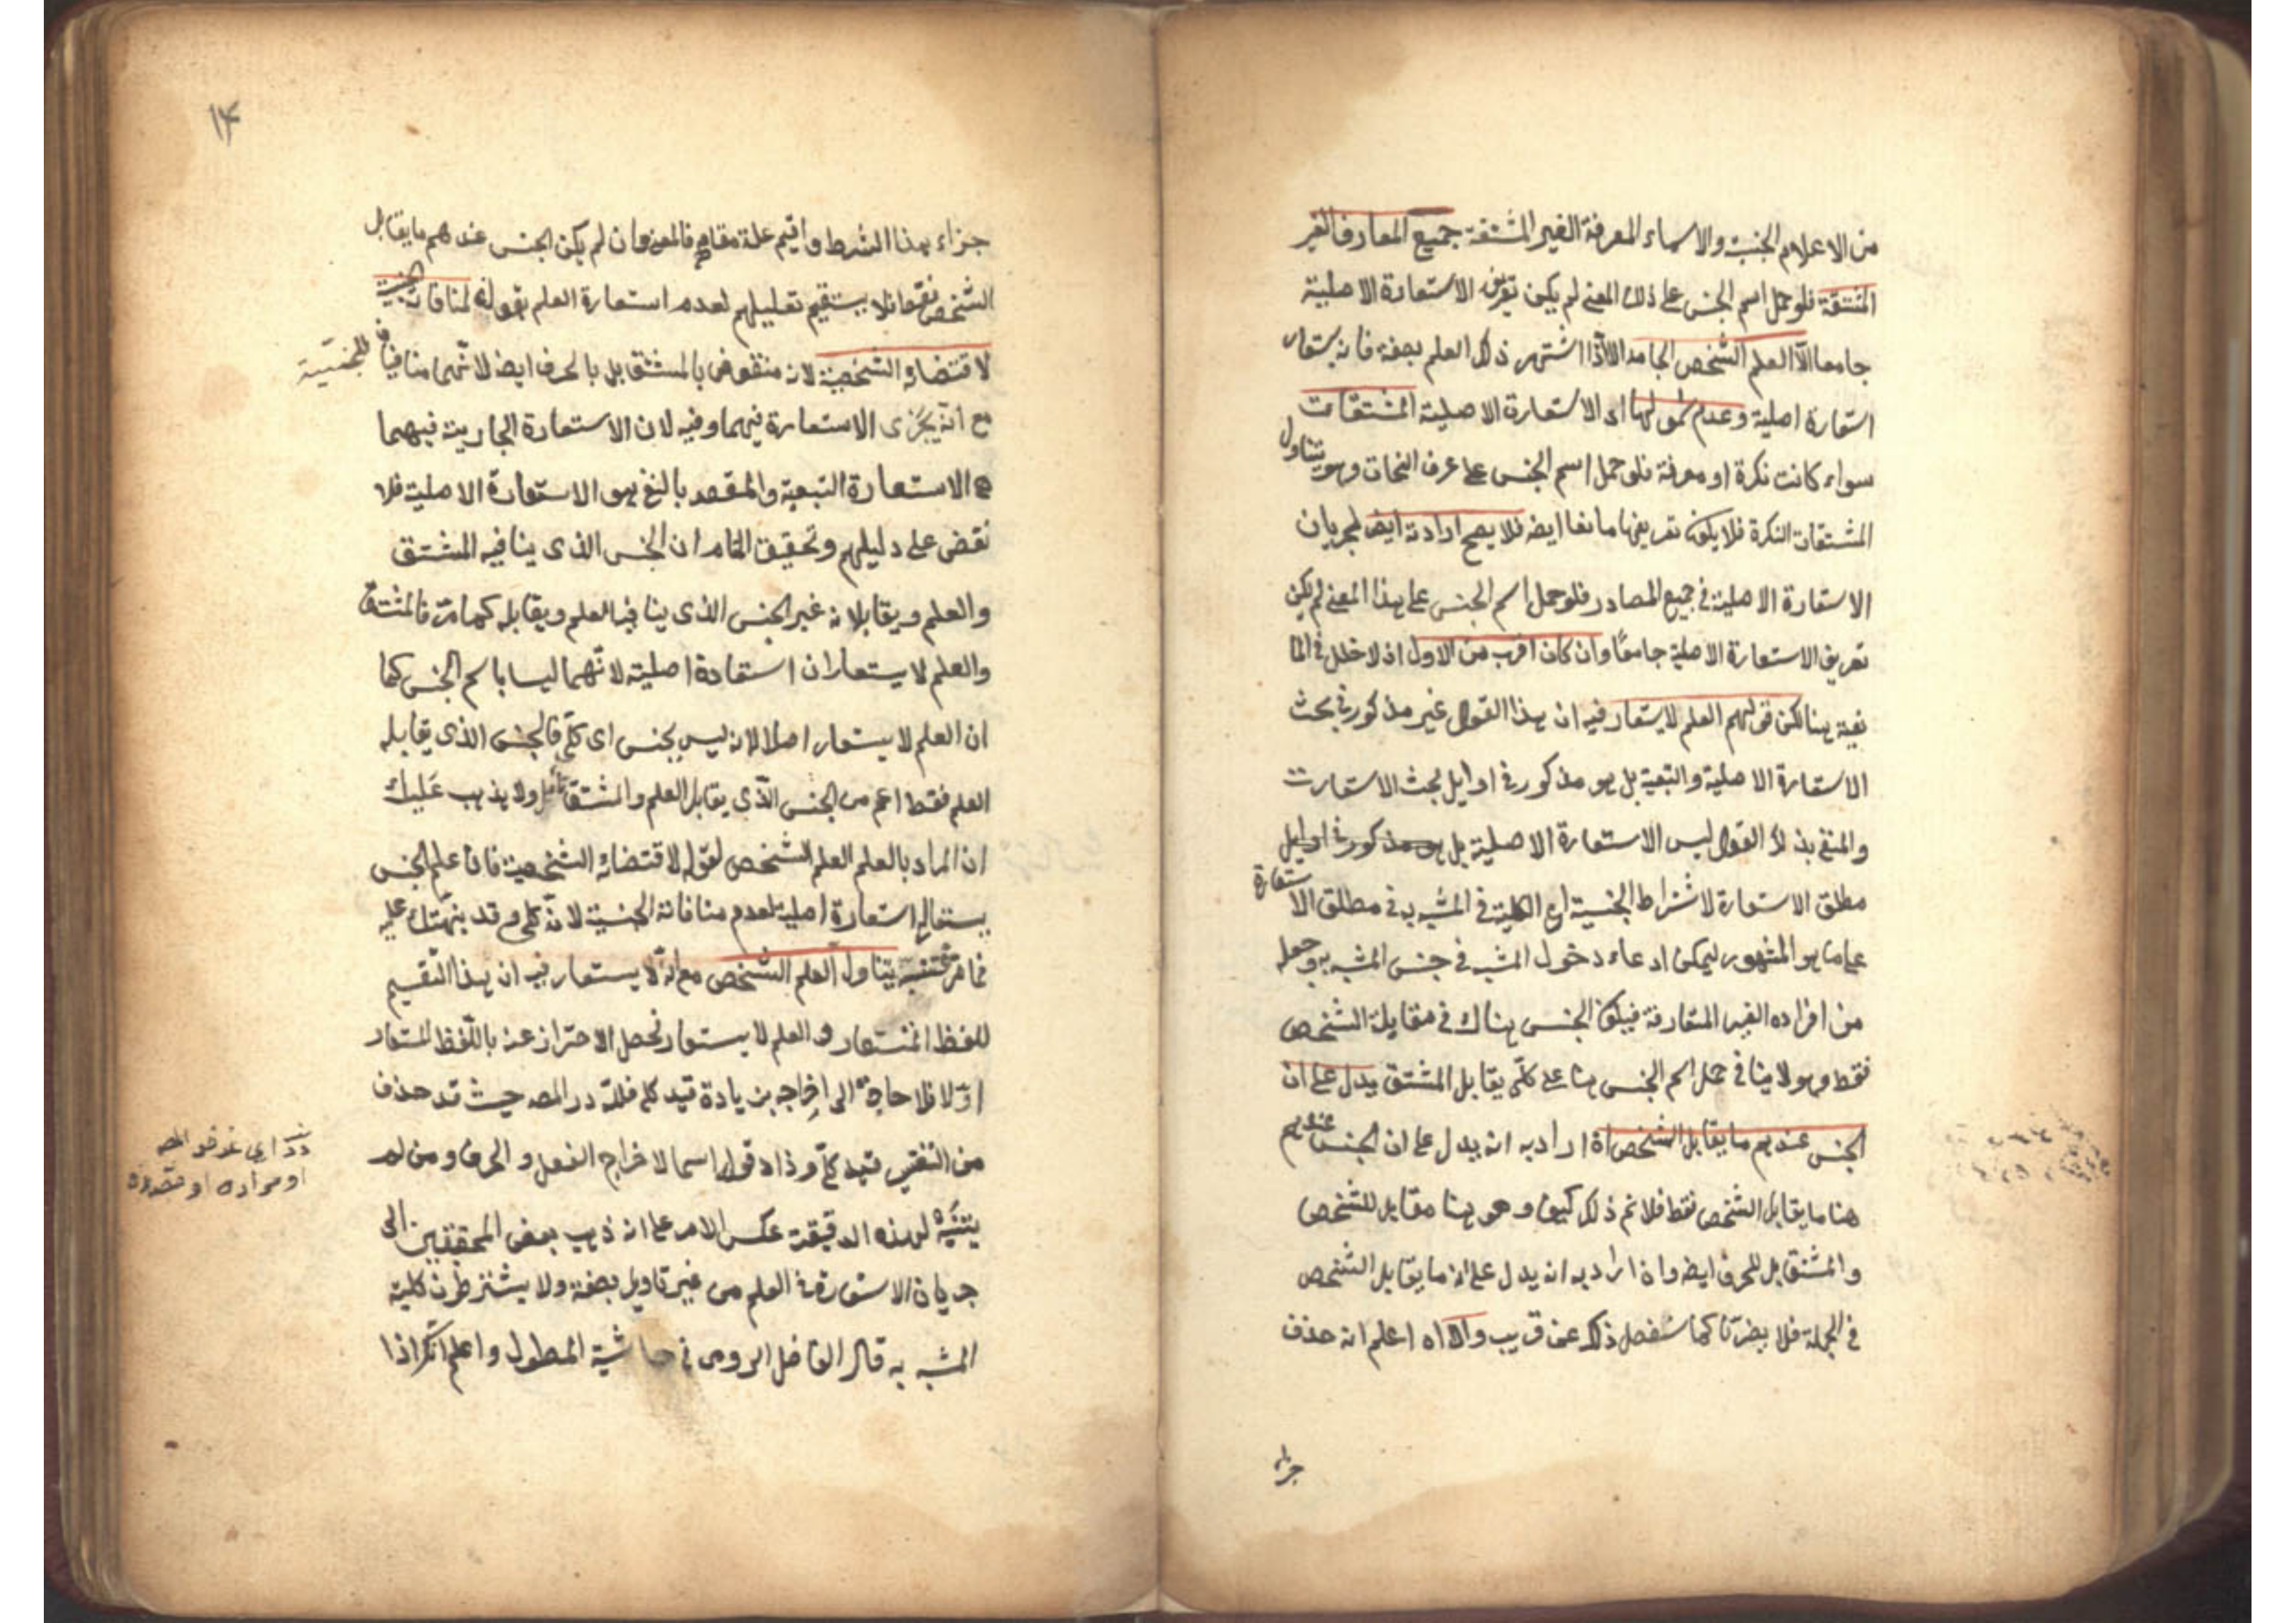 من الاعلام الجنسية والاسماء المعرفة الغير المشتقة جميع المعارف الغير
المشتقة فلو حمل اسم الجنس على ذلك المعنى لم يكن تعريف الاستعارة الاصلية
جامعا الا العلم الشخص الجامد الا اذا اشتهر ذلك العلم بصفة فانه يستعار
استعارة اصلية وعدم شمولها اى الاستعارة الاصلية المشتقات
سواء كانت نكرة او معرفة فلو حمل اسم الجنس على عرف النحات وهو يتناول
المشتقات النكرة فلا يكون تعريفها مانعا ايضه فلا يصح ارادته ايضه لجريان
الاستعارة الاصلية في جميع المصادر فلو حمل اسم الجنس على هذا المعنى لم يكن
تعريف الاستعارة الاصلية جامعًا وان كان اقرب من الاول اذ لا خلل في الما
نعية هنا لكن قولهم العلم لا يستعار فيه ان هذا القول غير مذكور في بحث
الاستعارة الاصلية والتبعية بل هو مذكور في اوايل بحث الاستعارت
والمنفى بذلك القول ليس الاستعارة الاصلية بل هو مذكور في اوايل
مطلق الاستعارة لاشتراط الجنسية اى الكلية في المشبه به في مطلق الاستعارة
على ما هو المشهور ليمكن ادعاء دخول المشبه في جنس المشبه به وجعله
من افراده الغير المتعارفة فيكون الجنس هناك في مقابلة الشخص
فقط وهو لا ينافي حمل اسم الجنس هنا على كلّى يقابل المشتق يدل على ان
الجنس عندهم ما يقابل الشخص اه اراد به انه يدل على ان الجنس عندهم
هنا ما يقابل الشخص فقط فلا نم ذلك كيف وهو هنا مقابل للشخص
والمشتق بل للحرف ايضه وان اراد به انه يدل على انه ما يقابل الشخص
في الجملة فلا يضرنا كما سنفصل ذلك عن قريب والا اه اعلم انه حذف
جزاء
١٤
جزاء هذا الشرط واقيم علة مقامه فالمعنى وان لم يكن الجنس عندهم ما يقابل
الشخص فقط فلا يستقيم تعليلهم لعدم استعارة العلم بقوله لمنافاته الجنسية
لاقتضائه الشخصية لانه منقوض بالمشتق بل بالحرف ايضه لانّهما منافيان للجنسية
مع انه يجرى الاستعارة فيهما وفيه لان الاستعارة الجارية فيهما
هى الاستعارة التبعية والمقصد بالنفى هو الاستعارة الاصلية فلا
نقض على دليلهم وتحقيق المقام ان الجنس الذى ينافيه المشتق
والعلم ويقابلانه غير الجنس الذى ينافيه العلم ويقابله كما مرّ فالمشتق
والعلم لا يستعاران استعارة اصلية لانّهما ليسا باسم الجنس كما
ان العلم لا يستعار اصلا لانه ليس بجنس اى كلّى فالجنس الذى يقابله
العلم فقط اعم من الجنس الذّى يقابل العلم والمشتق تأمل ولا يذهب عَليك
ان المراد بالعلم العلم الشخص لقوله لاقتضائه الشخصية فان علم الجنس
يستعار استعارة اصلية لعدم منافاته الجنسية لانّه كلى وقد نبهتك عليه
فيما مرّ فتنبه يتناول العلم الشخص مع انه لا يستعار فيه ان هذا التّقسيم
للفظ المستعار والعلم لا يستعار فحصل الاحتراز عنه باللّفظ المستعار
اوّلا فلا حاجة الى اخراجه بزيادة قيد كلى فللّه در المصه حيث قد حذف
من التفسير قيد كلّى وزاد قوله اسما لاخراج الفعل والحرف ومن لم
يتنبّه لهذه الدقيقة عكس الامر على انه ذهب بعض المحققين الى
جريان الاستعارة في العلم من غير تاويل بصفة ولا يشترطون كلية
المشبه به قال الفاضل الرومى في حاشية المطول واعلم انّك اذا